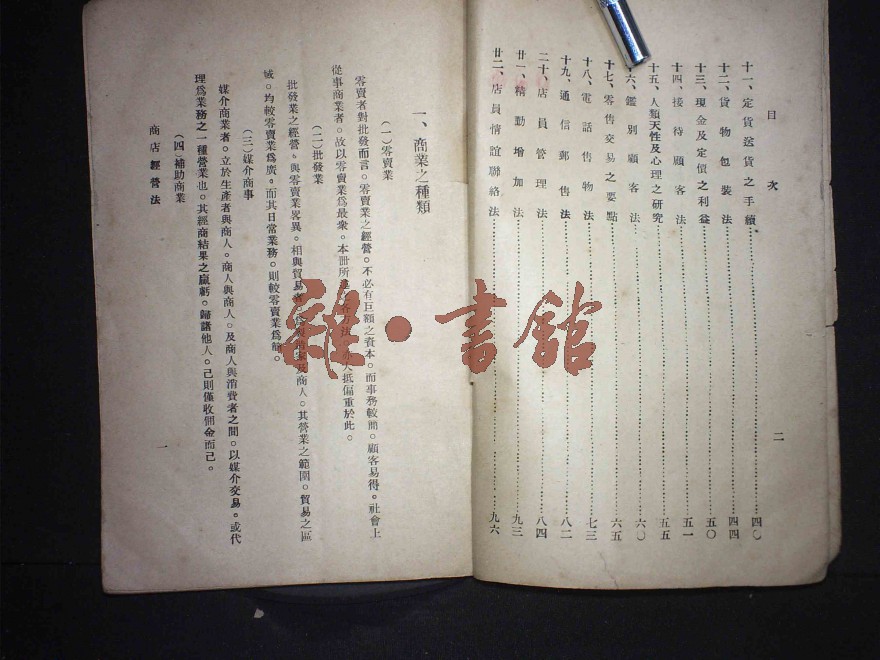 目 次
二
十一、定貨送貨之手續……四〇
十二、貨物包裝法……四四
十三、現金及定價之利益……五〇
十四、接待顧客法……五一
十五、人類天性及心理之研究……五五
十六、鑑別顧客法……六〇
十七、零售交易之要點……六五
十八、電話售物法……七三
十九、通信郵售法……八二
二十、店員管理法……八四
廿一、精勤增加法……九三
廿二、店員情誼聯絡法……九六
一、商業之種類
(一)零賣業
零賣者對批發而言。零賣業之經營。不必有巨額之資本。而事務較簡。顧客易得。社會上
從事商業者。故以零賣業爲最衆。本册所 大抵偏重於此。
(二)批發業
批發業之經營。與零賣業畧異。相與貿易 及商人。其營業之範圍。貿易之區
域。均較零賣業爲廣。而其日常業務。則較零賣業爲簡。
(三)媒介商事
媒介商業者。立於生產者與商人。商人與商人。及商人與消費者之間。以媒介交易。或代
理爲業務之一種營業也。其經商結果之贏虧。歸諸他人。己則僅收佣金而已。
(四)補助商業
商店經營法
一
雜·書館